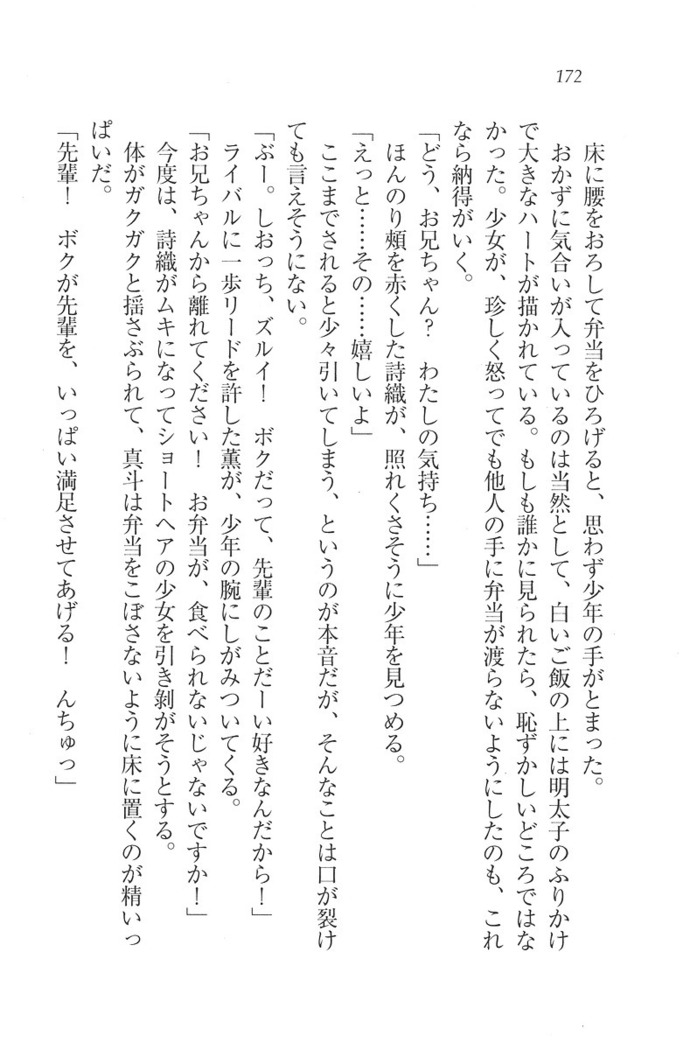 172
床に腰をおろして弁当をひろげると、思わず少年の手がとまった。
おかずに気合いが入っているのは当然として、白いご飯の上には明太子のふりかけ
で大きなハートが描かれている。もしも誰かに見られたら、恥ずかしいどころではな
かった。少女が、珍しく怒ってでも他人の手に弁当が渡らないようにしたのも、これ
なら納得がいく。
「どう、お兄ちゃん？　わたしの気持ち……」
ほんのり頬を赤くした詩織が、照れくさそうに少年を見つめる。
「えっと……その……嬉しいよ」
ここまでされると少々引いてしまう、というのが本音だが、そんなことは口が裂け
ても言えそうにない。
「ぶー。しおっち、ズルイ！　ボクだって、先輩のことだーい好きなんだから！」
ライバルに一歩リードを許した薫が、少年の腕にしがみついてくる。
「お兄ちゃんから離れてください！　お弁当が、食べられないじゃないですか！」
今度は、詩織がムキになってショートヘアの少女を引き剝がそうとする。
体がガクガクと揺さぶられて、真斗は弁当をこぼさないように床に置くのが精いっ
ぱいだ。
「先輩！　ボクが先輩を、いっぱい満足させてあげる！　んちゅっ」